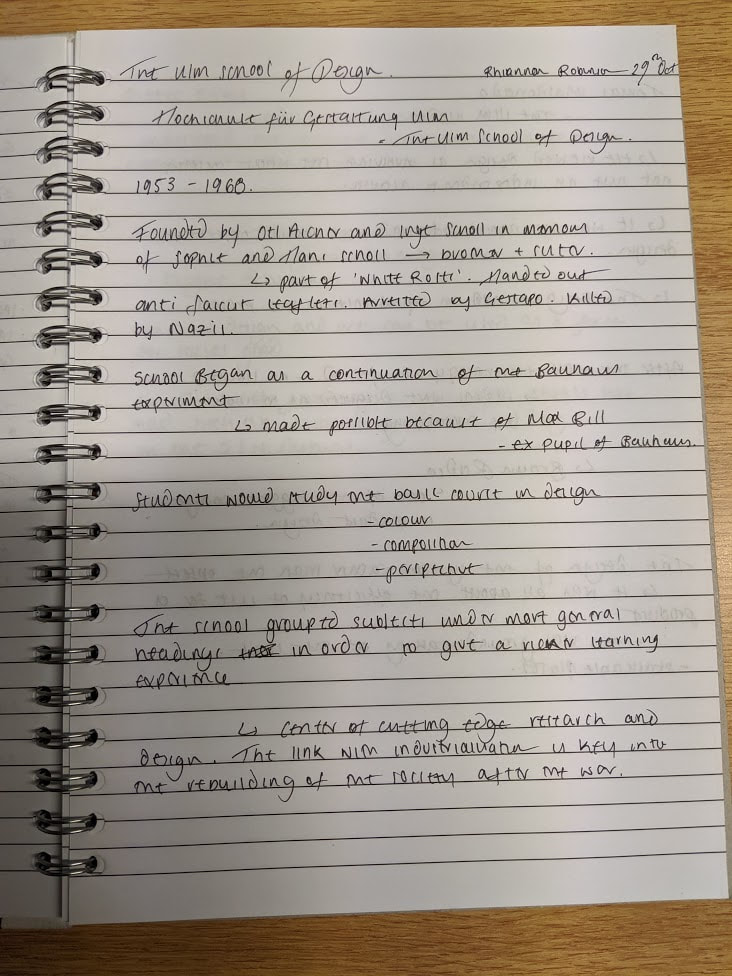 The Ulm School of Design. Rhiannon Robinson 29th Oct
Hochschule für Gestaltung Ulm
- The Ulm School of Design.
1953 - 1968.
Founded by Otl Aicher and Inge Scholl in memory
of Sophie and Hans Scholl → brother + sister.
↳ part of 'White Rose'. Handed out
anti fascist leaflets. Arrested by Gestapo. Killed
by Nazis.
School Began as a continuation of the Bauhaus
experiment
↳ made possible because of Max Bill
- ex pupil of Bauhaus.
Students would study the basic course in design
- colour
- composition
- perspective
The school grouped subjects under more general
headings in order to give a richer learning
experience
↳ center of cutting edge research and
design. The link with industrialisation is key into
the rebuilding of the society after the war.